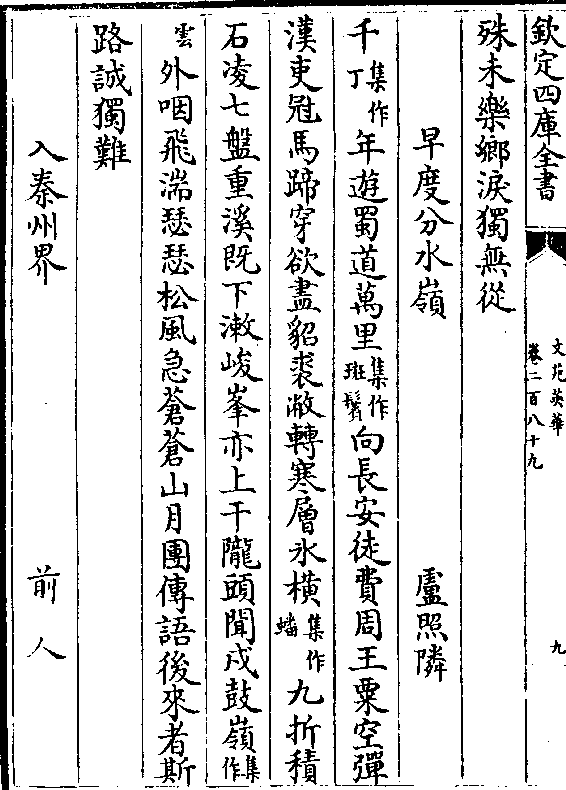 欽定四庫全書
文苑英華
卷二百八十九
九
殊未樂鄉淚獨無從
早度分水嶺 盧照隣
千集作丁年遊蜀道萬里集作斑鬢向長安徒費周王粟空彈
漢吏冠馬蹄穿欲盡貂裘敝轉寒層氷橫集作蟠九折積
石凌七盤重溪既下漱峻峯亦上干隴頭聞戍鼓嶺集作
雲外咽飛湍瑟瑟松風急蒼蒼山月團傳語後來者斯
路誠獨難
入秦州界 前人